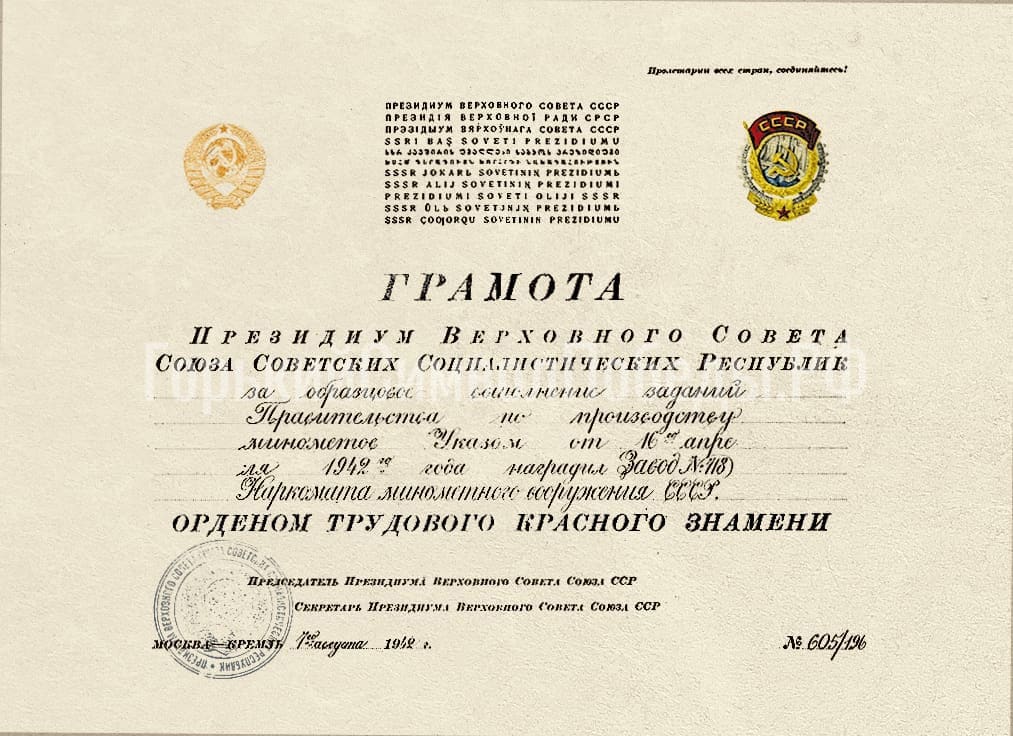 Пролетарии всех стран, соединяйтесь!
ПРЕЗИДИУМ ВЕРХОВНОГО СОВЕТА СССР
ПРЕЗИДІЯ ВЕРХОВНОЇ РАДИ СРСР
ПРЭЗІДЫУМ ВЯРХОЎНАГА СОВЕТА СССР
SSRI BAŞ SOVETI PREZIDIUMU
SSSR JOKARЬ SOVETININ PREZIDIUMЬ
SSSR ALIJ SOVETININ PREZIDIUMI
PREZIDIUMI SOVETI OLIJI SSSR
SSSR SOVETININ PREZIDIUMЬ
SSSR ÇOOIORQU SOVETININ PREZIDIUMU
СССР
ГРАМОТА
ПРЕЗИДИУМ ВЕРХОВНОГО СОВЕТА
СОЮЗА СОВЕТСКИХ СОЦИАЛИСТИЧЕСКИХ РЕСПУБЛИК
за образцовое выполнение заданий
Правительства по производству
минометов Указом от 16го апре
ля 1942го года наградил Завод № 118)
Наркомата минометного вооружения СССР.
ОРДЕНОМ ТРУДОВОГО КРАСНОГО ЗНАМЕНИ
ПРЕДСЕДАТЕЛЬ ПРЕЗИДИУМА ВЕРХОВНОГО СОВЕТА СОЮЗА ССР
СЕКРЕТАРЬ ПРЕЗИДИУМА ВЕРХОВНОГО СОВЕТА СОЮЗА ССР
МОСКВА—КРЕМЛЬ 7го августа 1942 г.
№ 605/196